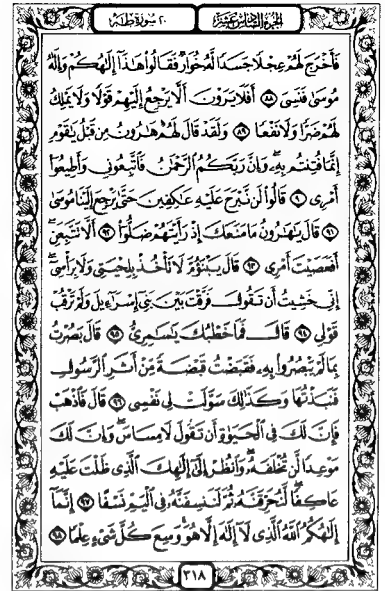 الجزء السادس عشر
٢٠ سورة طه
فَأَخْرَجَ لَهُمْ عِجْلًا جَسَدًا لَّهُ خُوَارٌ فَقَالُوا هَٰذَا إِلَٰهُكُمْ وَإِلَٰهُ
مُوسَىٰ فَنَسِىَ ٨٨ أَفَلَا يَرَوْنَ أَلَّا يَرْجِعُ إِلَيْهِمْ قَوْلًا وَلَا يَمْلِكُ
لَهُمْ ضَرًّا وَلَا نَفْعًا ٨٩ وَلَقَدْ قَالَ لَهُمْ هَٰرُونُ مِن قَبْلُ يَٰقَوْمِ
إِنَّمَا فُتِنتُم بِهِۦ وَإِنَّ رَبَّكُمُ الرَّحْمَٰنُ فَاتَّبِعُونِى وَأَطِيعُوا
أَمْرِى ٩٠ قَالُوا لَن نَّبْرَحَ عَلَيْهِ عَٰكِفِينَ حَتَّىٰ يَرْجِعَ إِلَيْنَا مُوسَىٰ
٩١ قَالَ يَٰهَٰرُونُ مَا مَنَعَكَ إِذْ رَأَيْتَهُمْ ضَلُّوا ٩٢ أَلَّا تَتَّبِعَنِ
أَفَعَصَيْتَ أَمْرِى ٩٣ قَالَ يَبْنَؤُمَّ لَا تَأْخُذْ بِلِحْيَتِى وَلَا بِرَأْسِى
إِنِّى خَشِيتُ أَن تَقُولَ فَرَّقْتَ بَيْنَ بَنِى إِسْرَٰٓءِيلَ وَلَمْ تَرْقُبْ
قَوْلِى ٩٤ قَالَ فَمَا خَطْبُكَ يَٰسَٰمِرِىُّ ٩٥ قَالَ بَصُرْتُ
بِمَا لَمْ يَبْصُرُوا بِهِۦ فَقَبَضْتُ قَبْضَةً مِّنْ أَثَرِ الرَّسُولِ
فَنَبَذْتُهَا وَكَذَٰلِكَ سَوَّلَتْ لِى نَفْسِى ٩٦ قَالَ فَاذْهَبْ
فَإِنَّ لَكَ فِى الْحَيَوٰةِ أَن تَقُولَ لَا مِسَاسَ وَإِنَّ لَكَ
مَوْعِدًا لَّن تُخْلَفَهُۥ وَانظُرْ إِلَىٰ إِلَٰهِكَ الَّذِى ظَلْتَ عَلَيْهِ
عَاكِفًا لَّنُحَرِّقَنَّهُۥ ثُمَّ لَنَنسِفَنَّهُۥ فِى الْيَمِّ نَسْفًا ٩٧ إِنَّمَا
إِلَٰهُكُمُ اللَّهُ الَّذِى لَا إِلَٰهَ إِلَّا هُوَ وَسِعَ كُلَّ شَىْءٍ عِلْمًا ٩٨
٣١٨